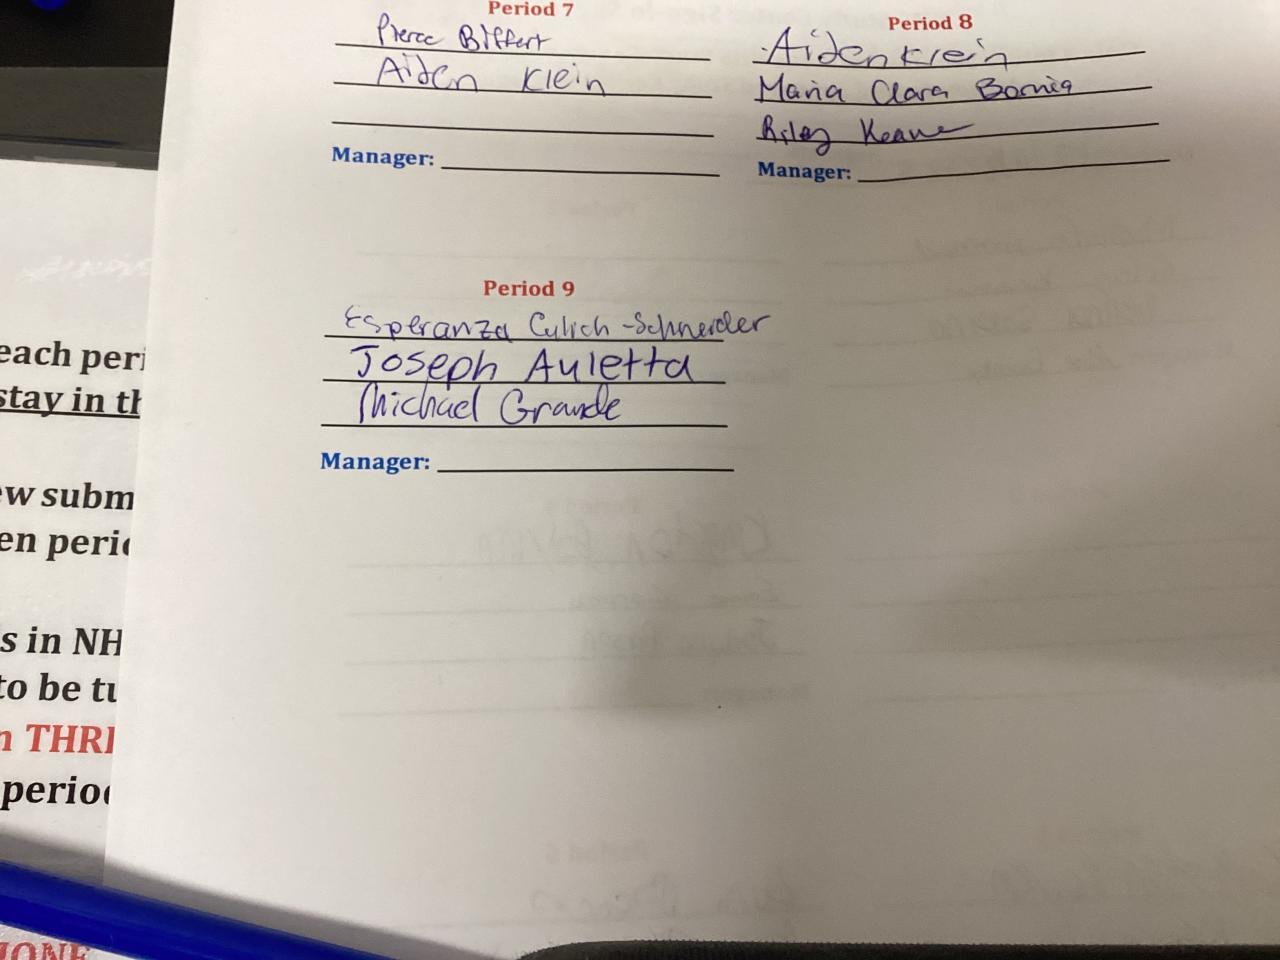 Period 7
Pierce Biffert
Aiden Klein
Manager:
Period 8
Aiden Klein
Maria Clara
Riley Keane
Manager:
Period 9
Esperanza Culich-Schneider
Joseph Auletta
Michael Grande
Manager:
each peri
stay in th
ew subm
en perio
s in NH
to be tu
n THRE
period
IONE